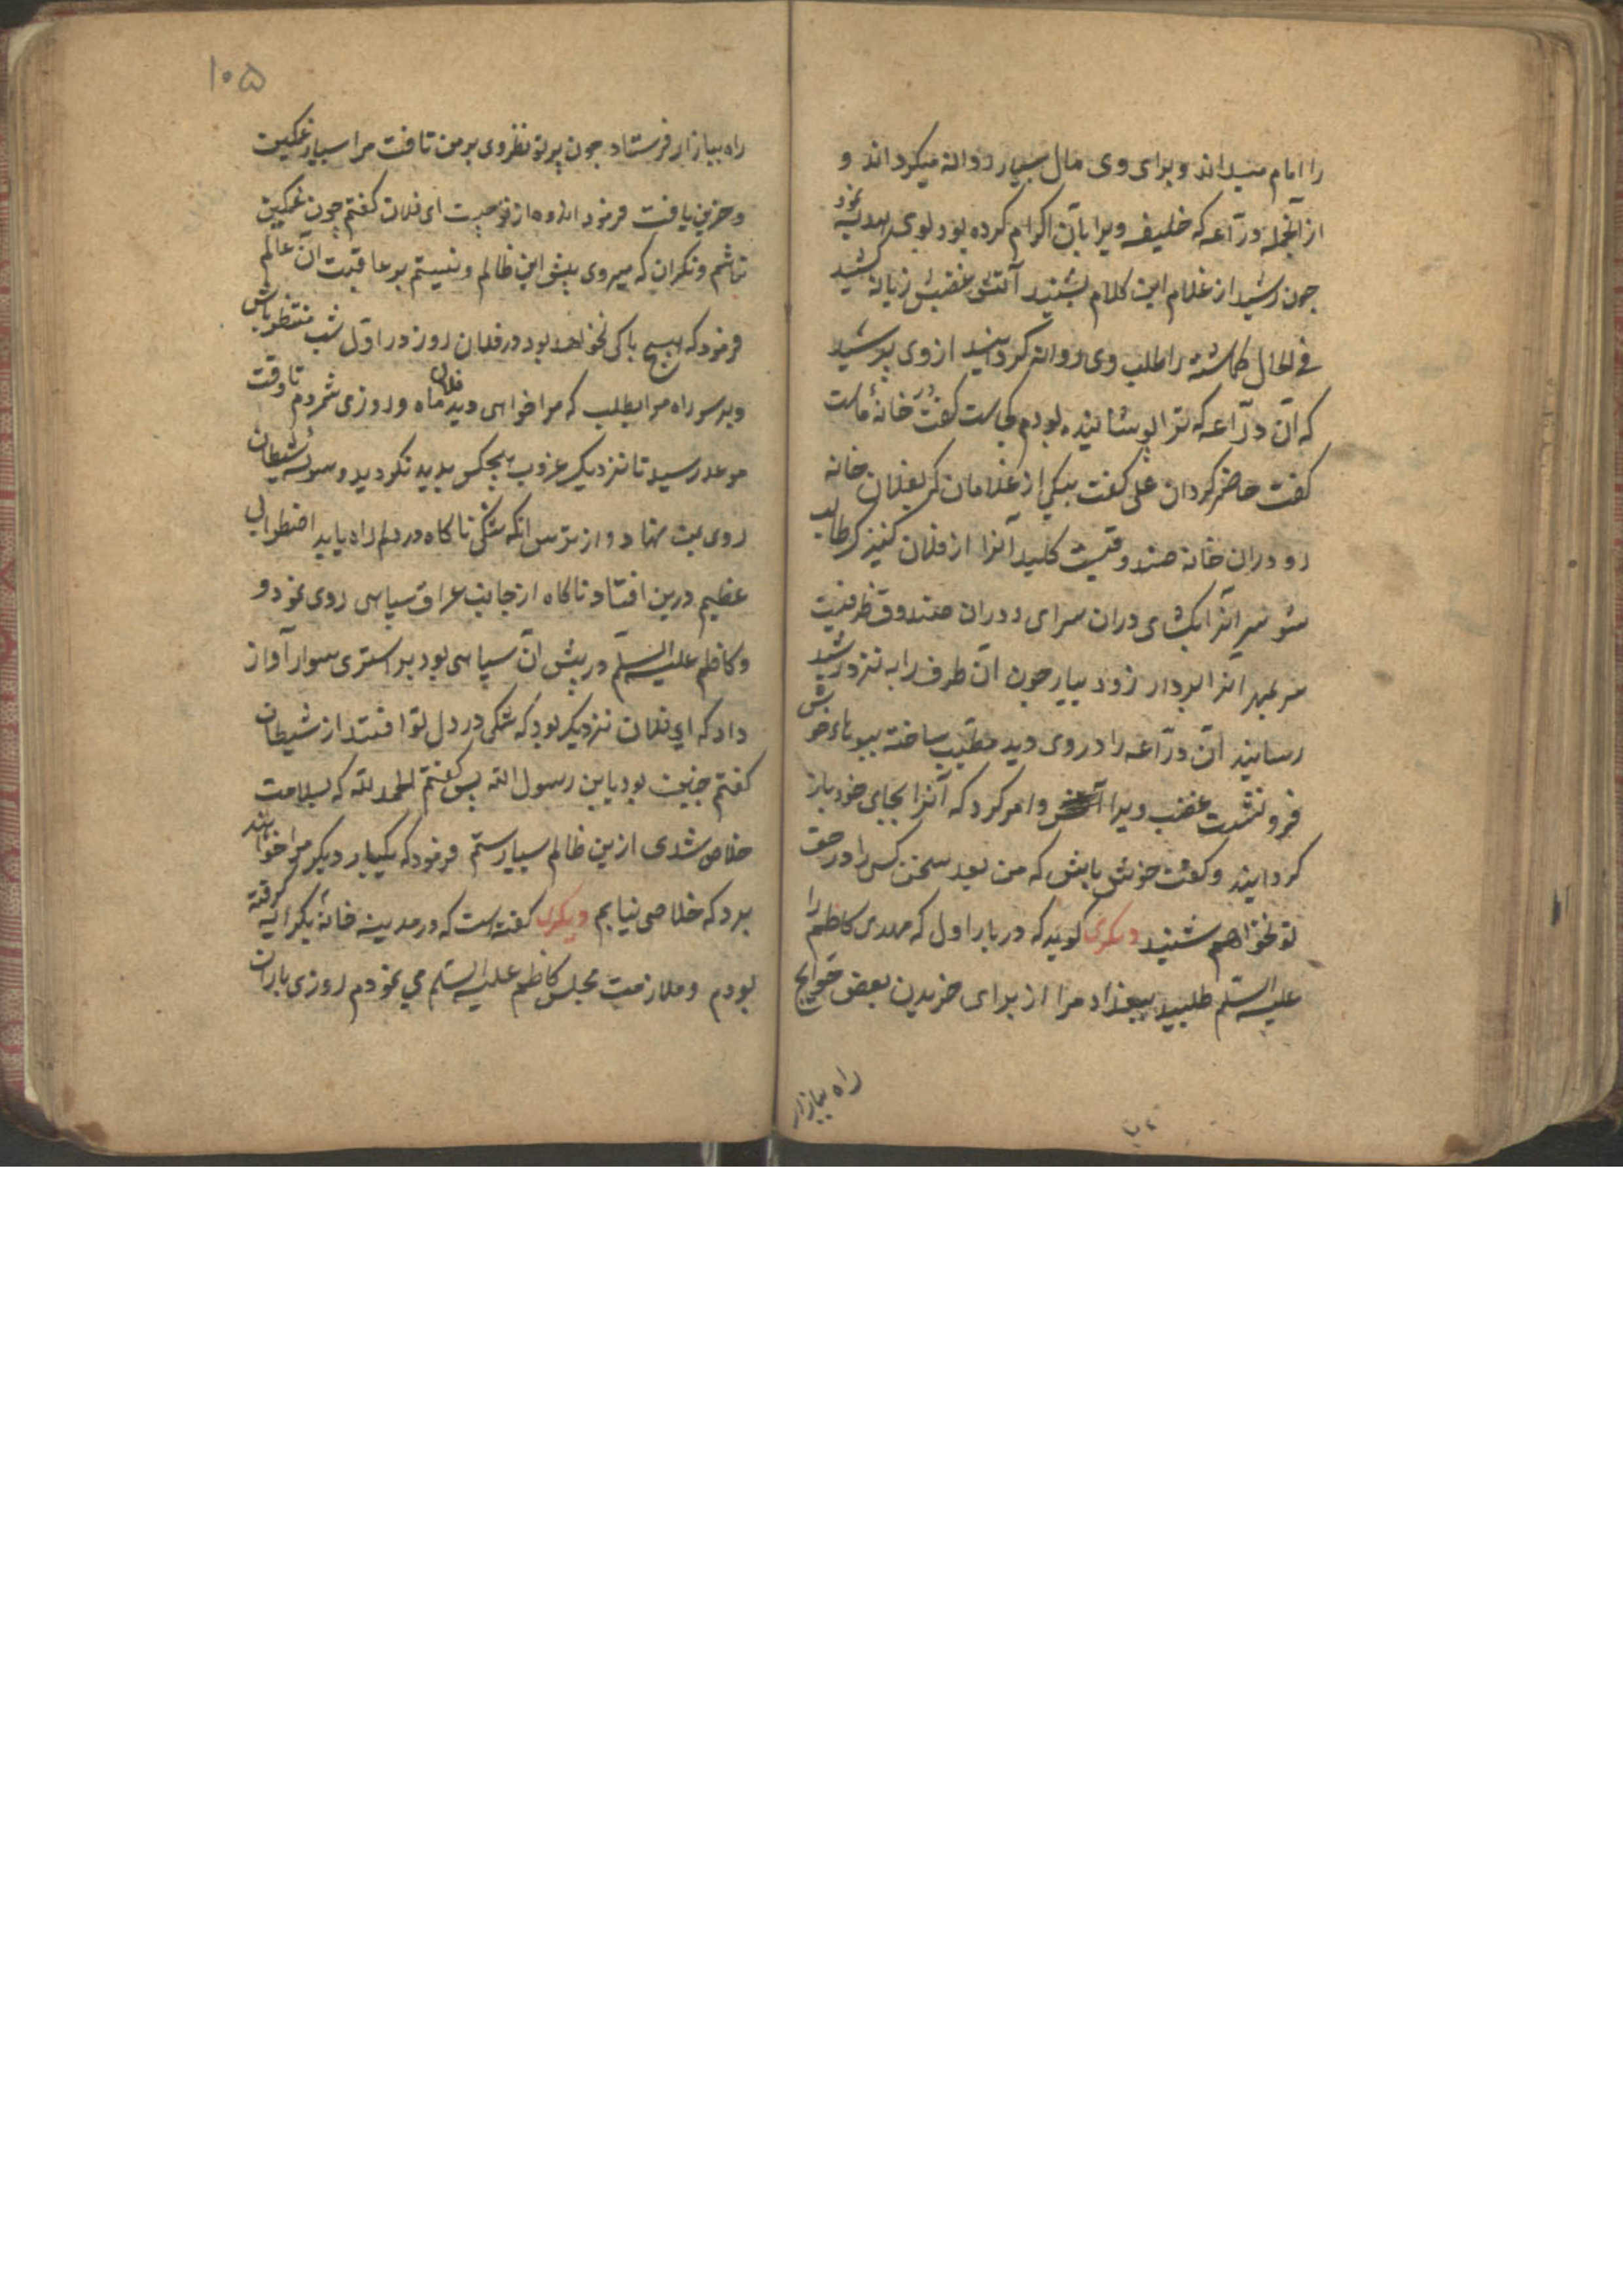 را امام میداند و برای وی مال بسیار روانه میکرداند و
از آنجمله درّاعه که خلیفه ویرا بآن اکرام کرده بود بوی هدیه نمود
چون رشید از غلام این کلام بشنید آتش غضبش زبانه کشید
فی الحال کماشته را بطلب وی روانه کردانید از وی پرسید
که آن درّاعه که ترا پوشانیده بودم کجاست کفت در خانهٔ ماست
کفت حاضر کردان علی کفت بیکی از غلامان که بفلان خانه
رو در ان خانه صندوقیست کلید آنرا از فلان کنیزک طالب
شو سر آنرا بکشای در ان سرای در ان صندوق ظرفیست
سر بمهر آنرا بردار زود بیار چون آن ظرف را به نزد رشید
رسانید آن درّاعه را در وی دید مطیّب ساخته ببویهاء خوش
فرو نشست غضب ویرا و امر کرد که آنرا بجای خود باز
کردانید و کفت خوش باش که من بعد سخن کس را در حق
تو نخواهم شنید دیکری کوید که در بار اول که مهدی کاظم را
علیه السلم طلبید ببغداد مرا از برای خریدن بعض حوایج
راه ببازار
۱۰۵
راه ببازار فرستاد چون پرتو نظر وی بر من تافت مرا بسیار غمکین
و حزین یافت فرمود اندوه از تو چیست ای فلان کفتم چون غمکین
نباشم و نکران که میروی پیش این ظالم و نیستم بر عاقبت آن عالم
فرمود که هیچ باکی نخواهد بود در فلان روز در اوّل شب منتظر باش
و بر سر راه مرا بطلب که مرا خواهی دید فلان ماه و روزی شمردم تا وقت
موعد رسید تا نزدیک غروب هیچکس پدید نکردید و سوسهٔ شیطان
روی بمن نهاد و از ترس انکه شکی ناکاه در دلم راه یابد اضطرابی
عظیم در من افتاد ناکاه از جانب عراق سیاهی روی نمود و
و کاظم علیه السلم در پیش آن سیاهی بود بر استری سوار آواز
داد که ای فلان نزدیک بود که شکی در دل تو افتد از شیطان
کفتم چنین بود یابن رسول الله پس کفتم الحمد لله که بسلامت
خلاص شدی ازین ظالم بسیار ستم فرمود که یکبار دیکر مرا خواهند
برد که خلاصی نیابم دیکری کفته است که در مدینه خانهٔ بکرایه کرفته
بودم و ملازمت مجلس کاظم علیه السلم می نمودم روزی باران